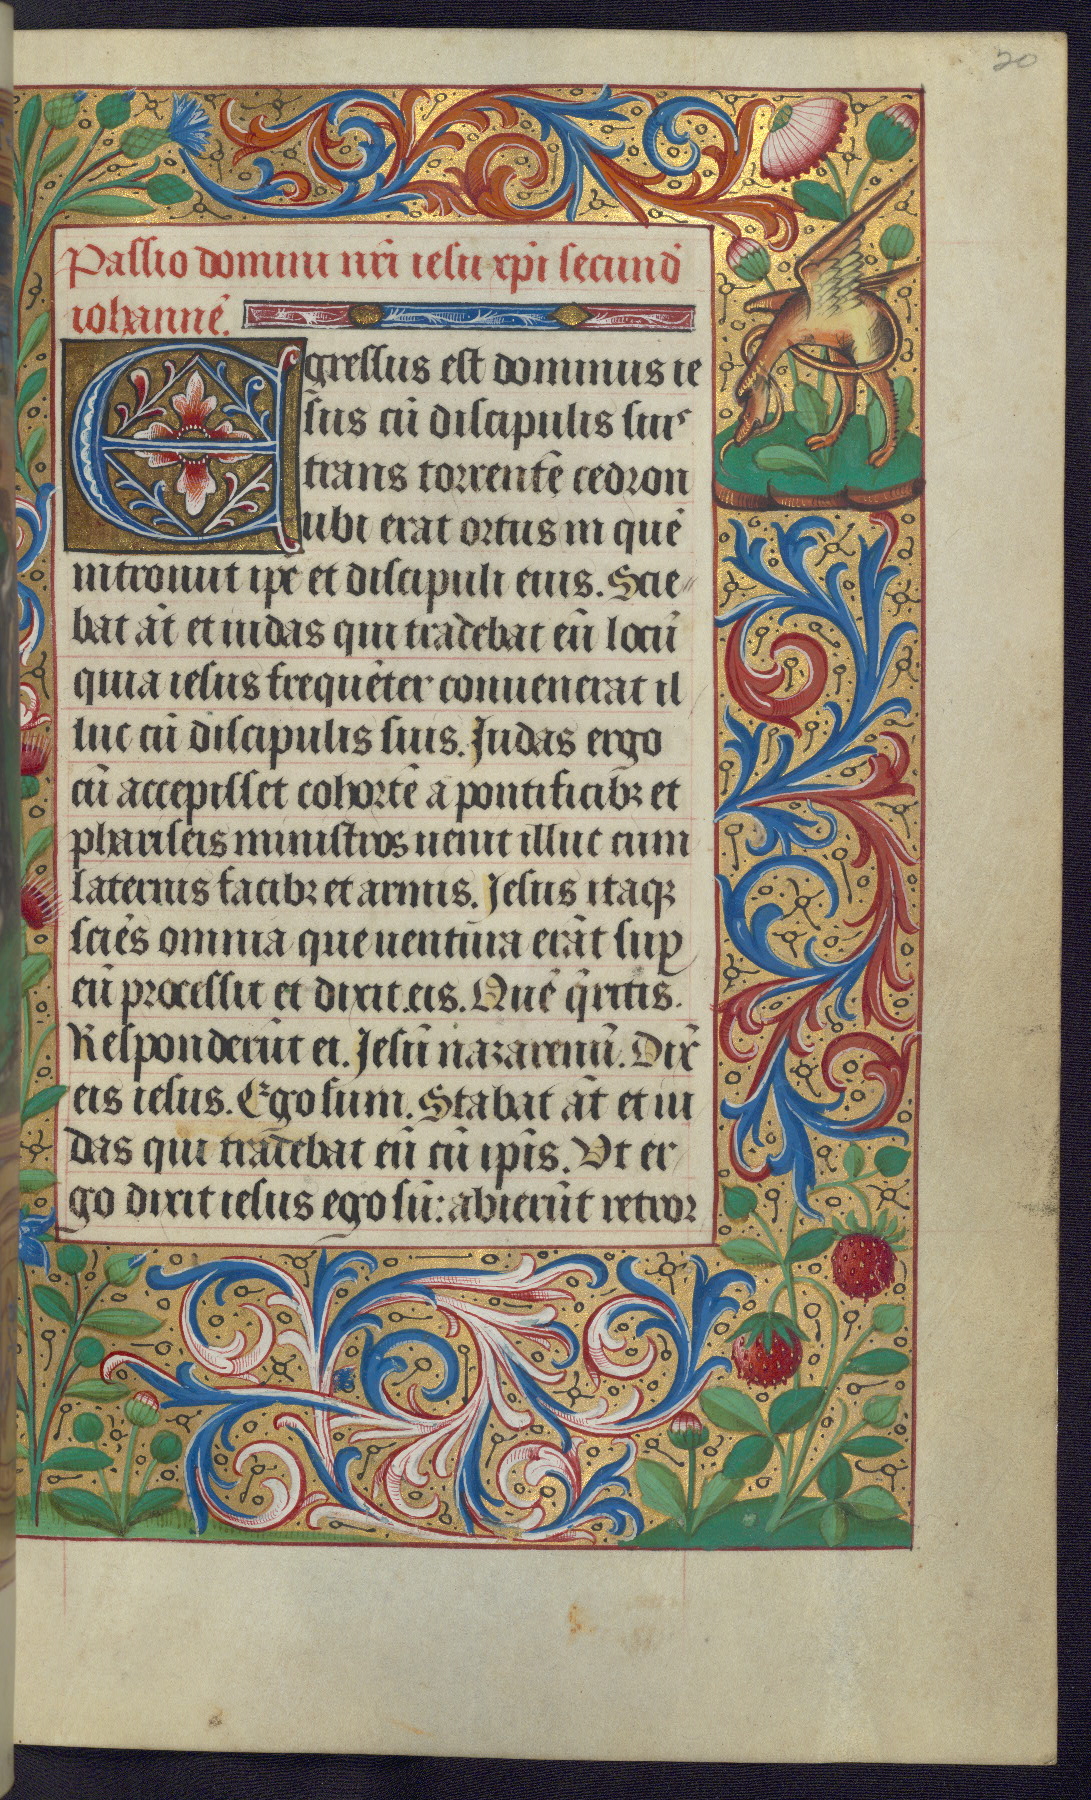 20
Passio domini nr̄i iesu xp̄i secund̄
iohannē.
Egressus est dominus ie
sus cū discipulis suis
trans torrentē cedron
ubi erat ortus in quē
introiuit ip̄e et discipuli eius. Scie-
bat āt et iudas qui tradebat eū locū
quia iesus frequēter conuenerat il
luc cū discipulis suis. Judas ergo
cū accepisset cohortē a pontificibꝫ et
phariseis ministros uenit illuc cum
laternis facibꝫ et armis. Jesus itaqꝫ
sciēs omnia que uentura erāt suꝑ
eū processit et dixit eis. Quē q̄ritis.
Responderūt ei. Jesū nazarenū. Dix̄
eis iesus. Ego sum. Stabat āt et iu
das qui tradebat eū cū ip̄is. Vt er
go dixit iesus ego sū: abierūt retror